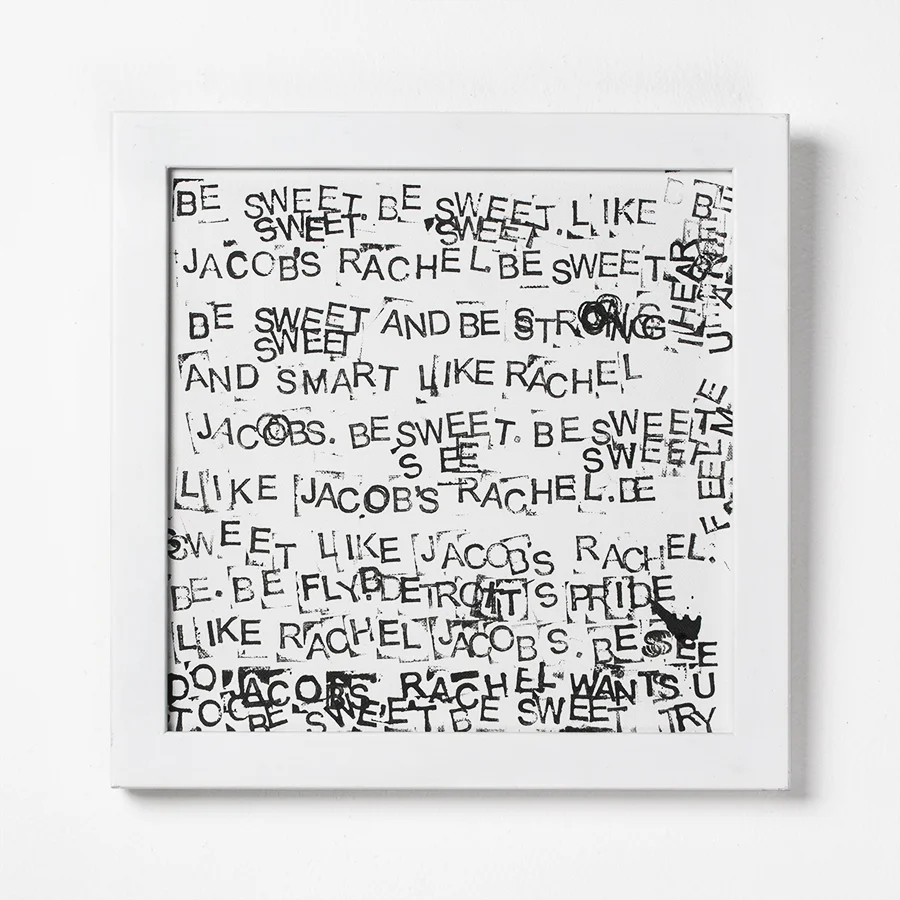 BE SWEET. BE SWEET. LIKE BE
SWEET SWEET
JACOB'S RACHEL. BE SWEET
BE SWEET AND BE STRONG
SWEET
AND SMART LIKE RACHEL
JACOBS. BE SWEET. BE SWEET
S EE SWEET
LIKE JACOB'S RACHEL. BE
SWEET LIKE JACOBS RACHEL.
BE. BE FLY. B DETROIT'S PRIDE
LIKE RACHEL JACOBS. BE SEE
DO. JACOBS. RACHEL WANTS U
TO BE SWEET BE SWEET TRY
I HEAR U
FEEL ME